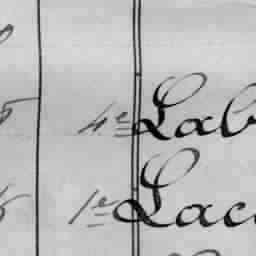 5 4e Lab
5 1e Lac